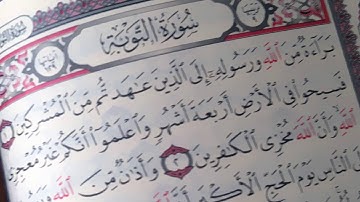 سُورَةُ التَّوْبَةِ
بَرَآءَةٌ مِّنَ اللَّهِ وَرَسُولِهِ إِلَى الَّذِينَ عَاهَدتُّم مِّنَ الْمُشْرِكِينَ ١
فَسِيحُوا فِي الْأَرْضِ أَرْبَعَةَ أَشْهُرٍ وَاعْلَمُوا أَنَّكُمْ غَيْرُ مُعْجِزِي
اللَّهِ وَأَنَّ اللَّهَ مُخْزِي الْكَافِرِينَ ٢ وَأَذَانٌ مِّنَ اللَّهِ
النَّاسِ يَوْمَ الْحَجِّ الْأَكْبَرِ